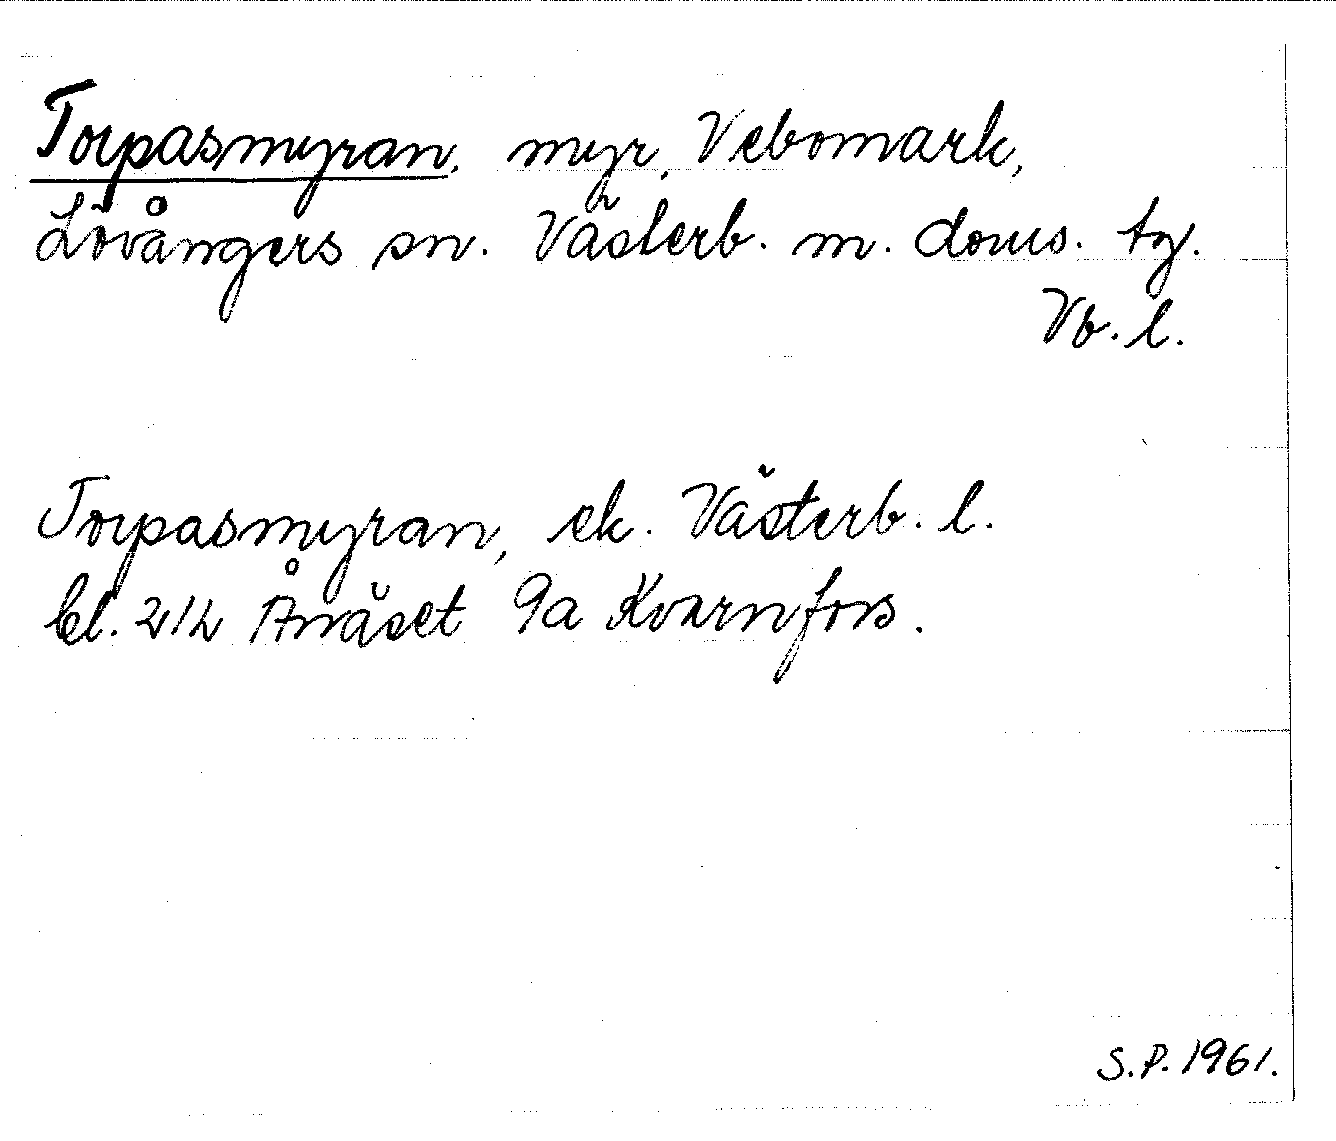 Torpasmyran, myr, Vebomark,
Lövångers sn. Västerb. m. doms. tg.
Vb. l.
Torpasmyran, ek. Västerb. l.
bl. 212 Ånäset 9a Kvarnfors.
S.P. 1961.